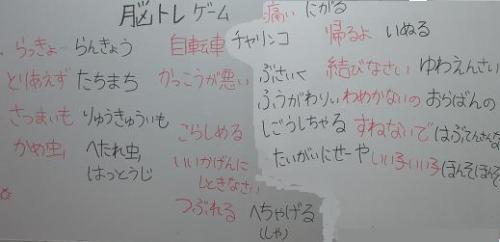 脳トレ ゲーム
らっきょ らんきょう
とりあえず たちまち
さつまいも りゅうきゅういも
かめ虫 へたれ虫
はっとうじ
自転車 チャリンコ
かっこうが悪い ぶさいく
ふうがわりぃ
こらしめる しごうしちゃる
いいかげんに しときなさい たいがいにせーや
つぶれる へちゃげる
(しゃ)
痛い にがる
帰るよ いぬる
結びなさい ゆわえんさい
わめかないの おらばんの
すねないで はぶてんさんな
いい子いい子 ほんそほんそ